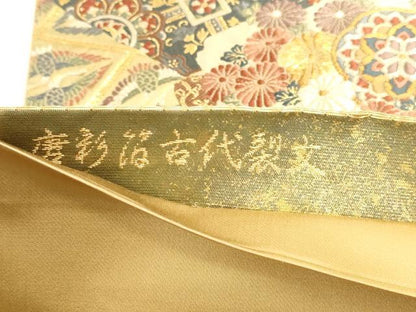 唐彩箔古代製文